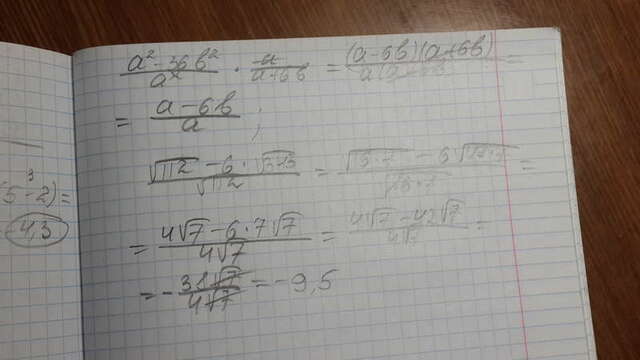 a² - 36b² / a² · a / a+6b = (a-6b)(a+6b) / a(a+6b) =
= a - 6b / a ;
√112 - 6 · √343 / √112 = √16·7 - 6√49·7 / √16·7 =
(5³-2) =
= 4√7 - 6 · 7√7 / 4√7 = 4√7 - 42√7 / 4√7 =
-4,3
= - 38√7 / 4√7 = -9,5